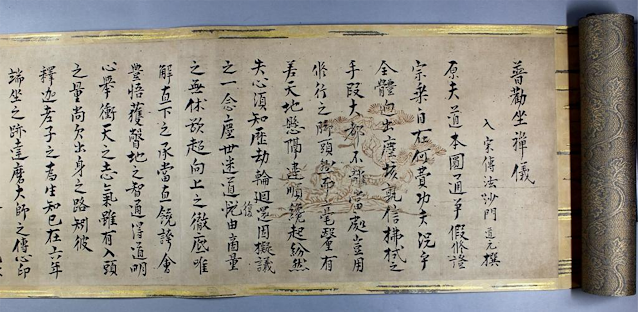 普勸坐禪儀
入宋傳法沙門道元撰
原夫道本圓通爭假修證
宗乘自在何費功夫況乎
全體迥出塵埃孰信拂拭之
手段大都不離當處豈用
修行之脚頭然而毫釐有
差天地懸隔違順纔起紛然
失心須知歷劫輪迴還因擬議
之一念塵世迷道由商量
之無休欲超向上之徹底唯
解直下之承當直饒誇會
豐悟獲瞥地之智通得道明
心擧衝天之志氣雖有入頭
之量尚欠出身之路矧彼
釋迦老子之爲生知已在六年
端坐之跡達磨大師之傳心印